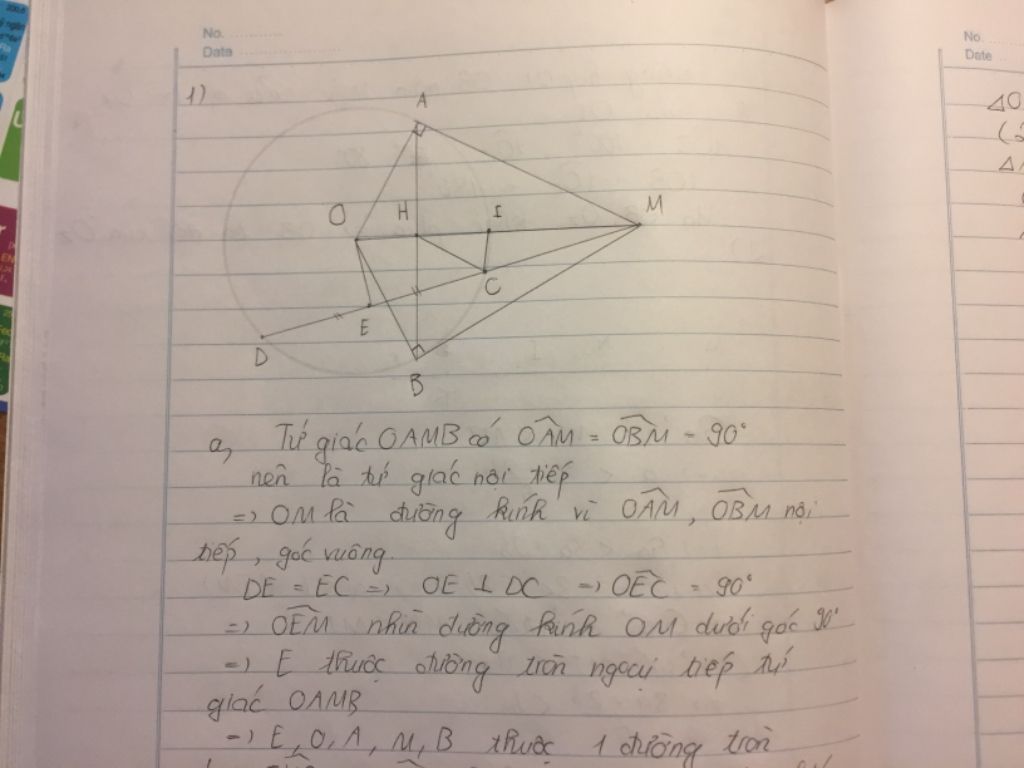 No.
Date
No.
Date
1)
A
O
H
I
M
C
E
D
B
a, Tứ giác OAMB có OÂM = OB̂M = 90°
nên là tứ giác nội tiếp
=> OM là đường kính vì OÂM, OB̂M nội
tiếp, góc vuông.
DE = EC => OE ⊥ DC => OÊC = 90°
=> OÊM nhìn đường kính OM dưới góc 90°
=> E thuộc đường tròn ngoại tiếp tứ
giác OAMB
=> E, O, A, M, B thuộc 1 đường tròn